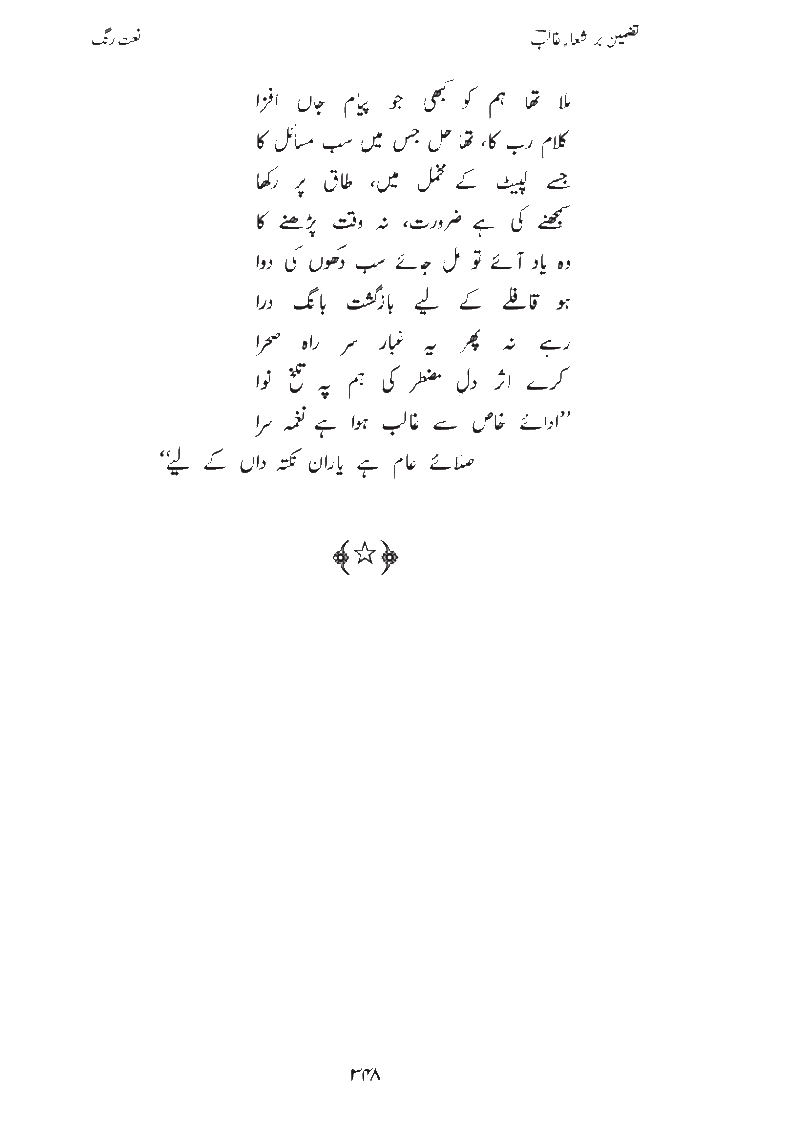 تضمین بر شعارِ غالبؔ
نعت رنگ
ملا تھا ہم کو کبھی جو پیام جاں افزا
کلام رب کا، تھا حل جس میں سب مسائل کا
جسے لپیٹ کے مخمل میں، طاق پر رکھا
سمجھنے کی ہے ضرورت، نہ وقت پڑھنے کا
وہ یاد آئے تو مل جائے سب دکھوں کی دوا
ہو قافلے کے لیے بازگشت بانگ درا
رہے نہ پھر یہ غبار سر راہ صحرا
کرے اثر دل مضطر کی ہم پہ تلخ نوا
”ادائے خاص سے غالب ہوا ہے نغمہ سرا
صلائے عام ہے یاران نکتہ داں کے لیے“
۳۴۸